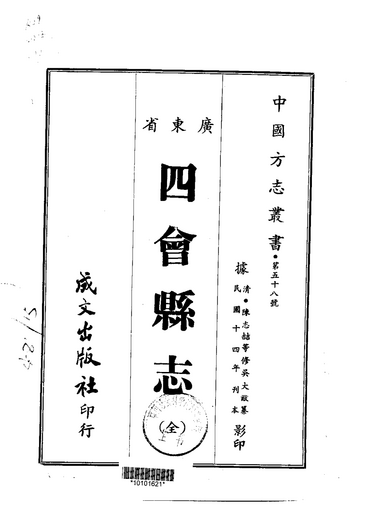 中國方志叢書・第五十八號
據清・陳志喆等修吳大猷纂
民國十四年刊本影印
廣東省
四會縣志
(全)
成文出版社印行
*10101621*